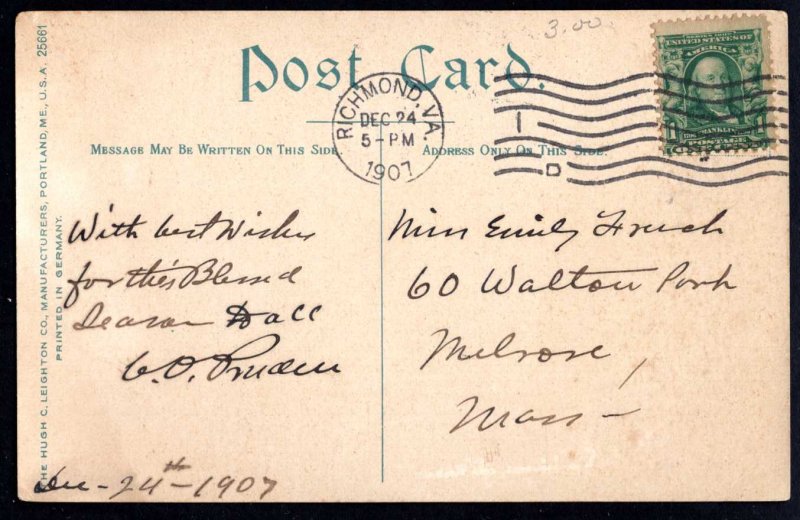 3.00
SERIES 1902
UNITED STATES OF
AMERICA
1 FRANKLIN 1
POSTAGE
Post Card.
RICHMOND, VA.
DEC 24
5-PM
1907
1
D
MESSAGE MAY BE WRITTEN ON THIS SIDE.
ADDRESS ONLY ON THIS SIDE
With best Wishes
for this Blessed
Season to all
C.O. Pruden
Dec - 24th - 1907
Miss Emily French
60 Walton Park
Melrose,
Mass -
THE HUGH C. LEIGHTON CO., MANUFACTURERS, PORTLAND, ME., U.S.A. 25661
PRINTED IN GERMANY.